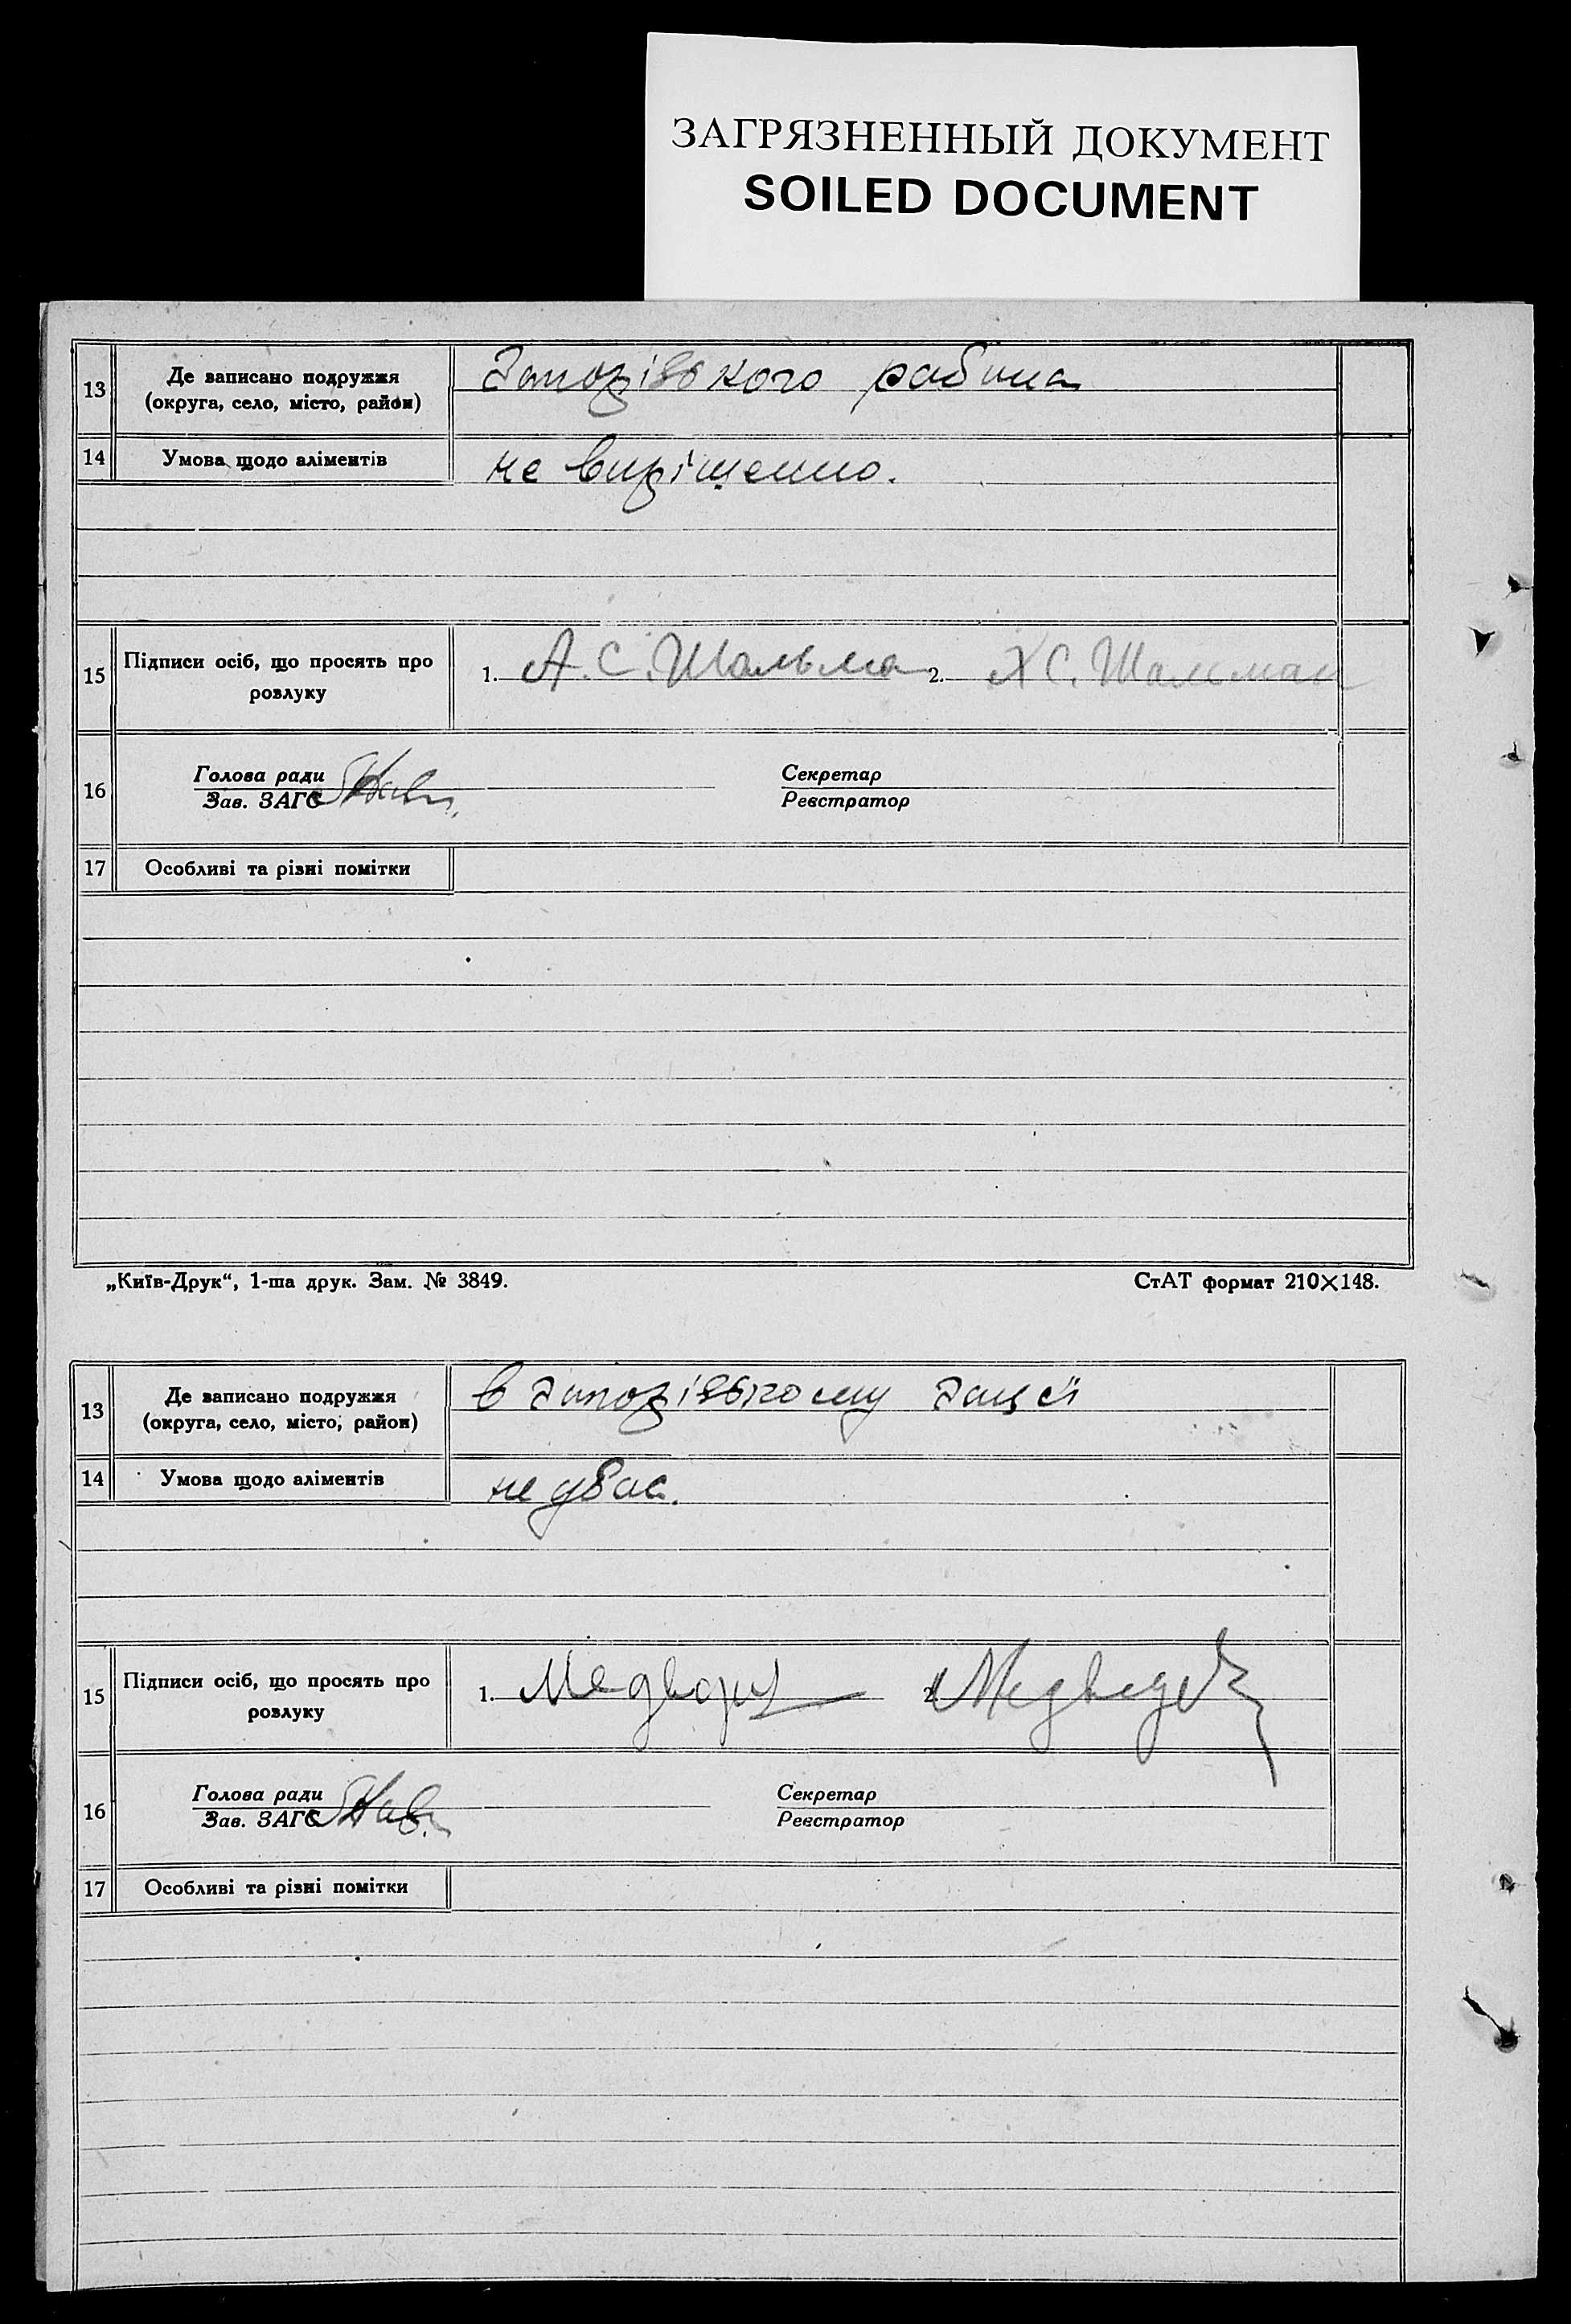 ЗАГРЯЗНЕННЫЙ ДОКУМЕНТ
SOILED DOCUMENT
13
Де записано подружжя
(округа, село, місто, район)
рабина
14
Умова щодо аліментів
не вирішенно.
15
Підписи осіб, що просять про
розлуку
1. А. С. Шальма 2. Х С. Шальман
16
Голова ради
Зав. ЗАГС
Секретар
Реєстратор
17
Особливі та різні помітки
„Київ-Друк“, 1-ша друк. Зам. № 3849.
СтАТ формат 210×148.
13
Де записано подружжя
(округа, село, місто, район)
в
14
Умова щодо аліментів
не
15
Підписи осіб, що просять про
розлуку
1.
2.
16
Голова ради
Зав. ЗАГС
Секретар
Реєстратор
17
Особливі та різні помітки